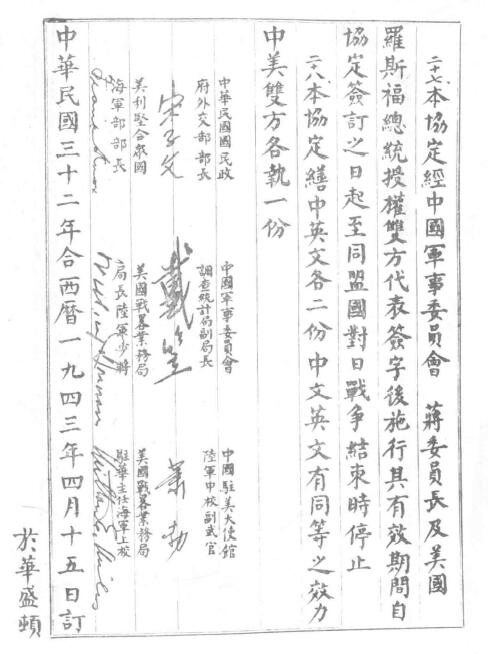 二十七、本協定經中國軍事委員會 蔣委員長及美國
羅斯福總統授權雙方代表簽字後施行其有效期間自
協定簽訂之日起至同盟國對日戰爭結束時停止
二十八、本協定繕中英文各二份中文英文有同等之效力
中美雙方各執一份
中華民國國民政
府外交部部長
宋子文
美利堅合眾國
海軍部部長
Frank Knox
中國軍事委員會
調查統計局副局長
戴笠
美國戰畧業務局
局長陸軍少將
William J Donovan
中國駐美大使館
陸軍中校副武官
蕭勃
美國戰畧業務局
駐華主任海軍上校
Milton E. Miles
中華民國三十二年合西曆一九四三年四月十五日訂
於華盛頓